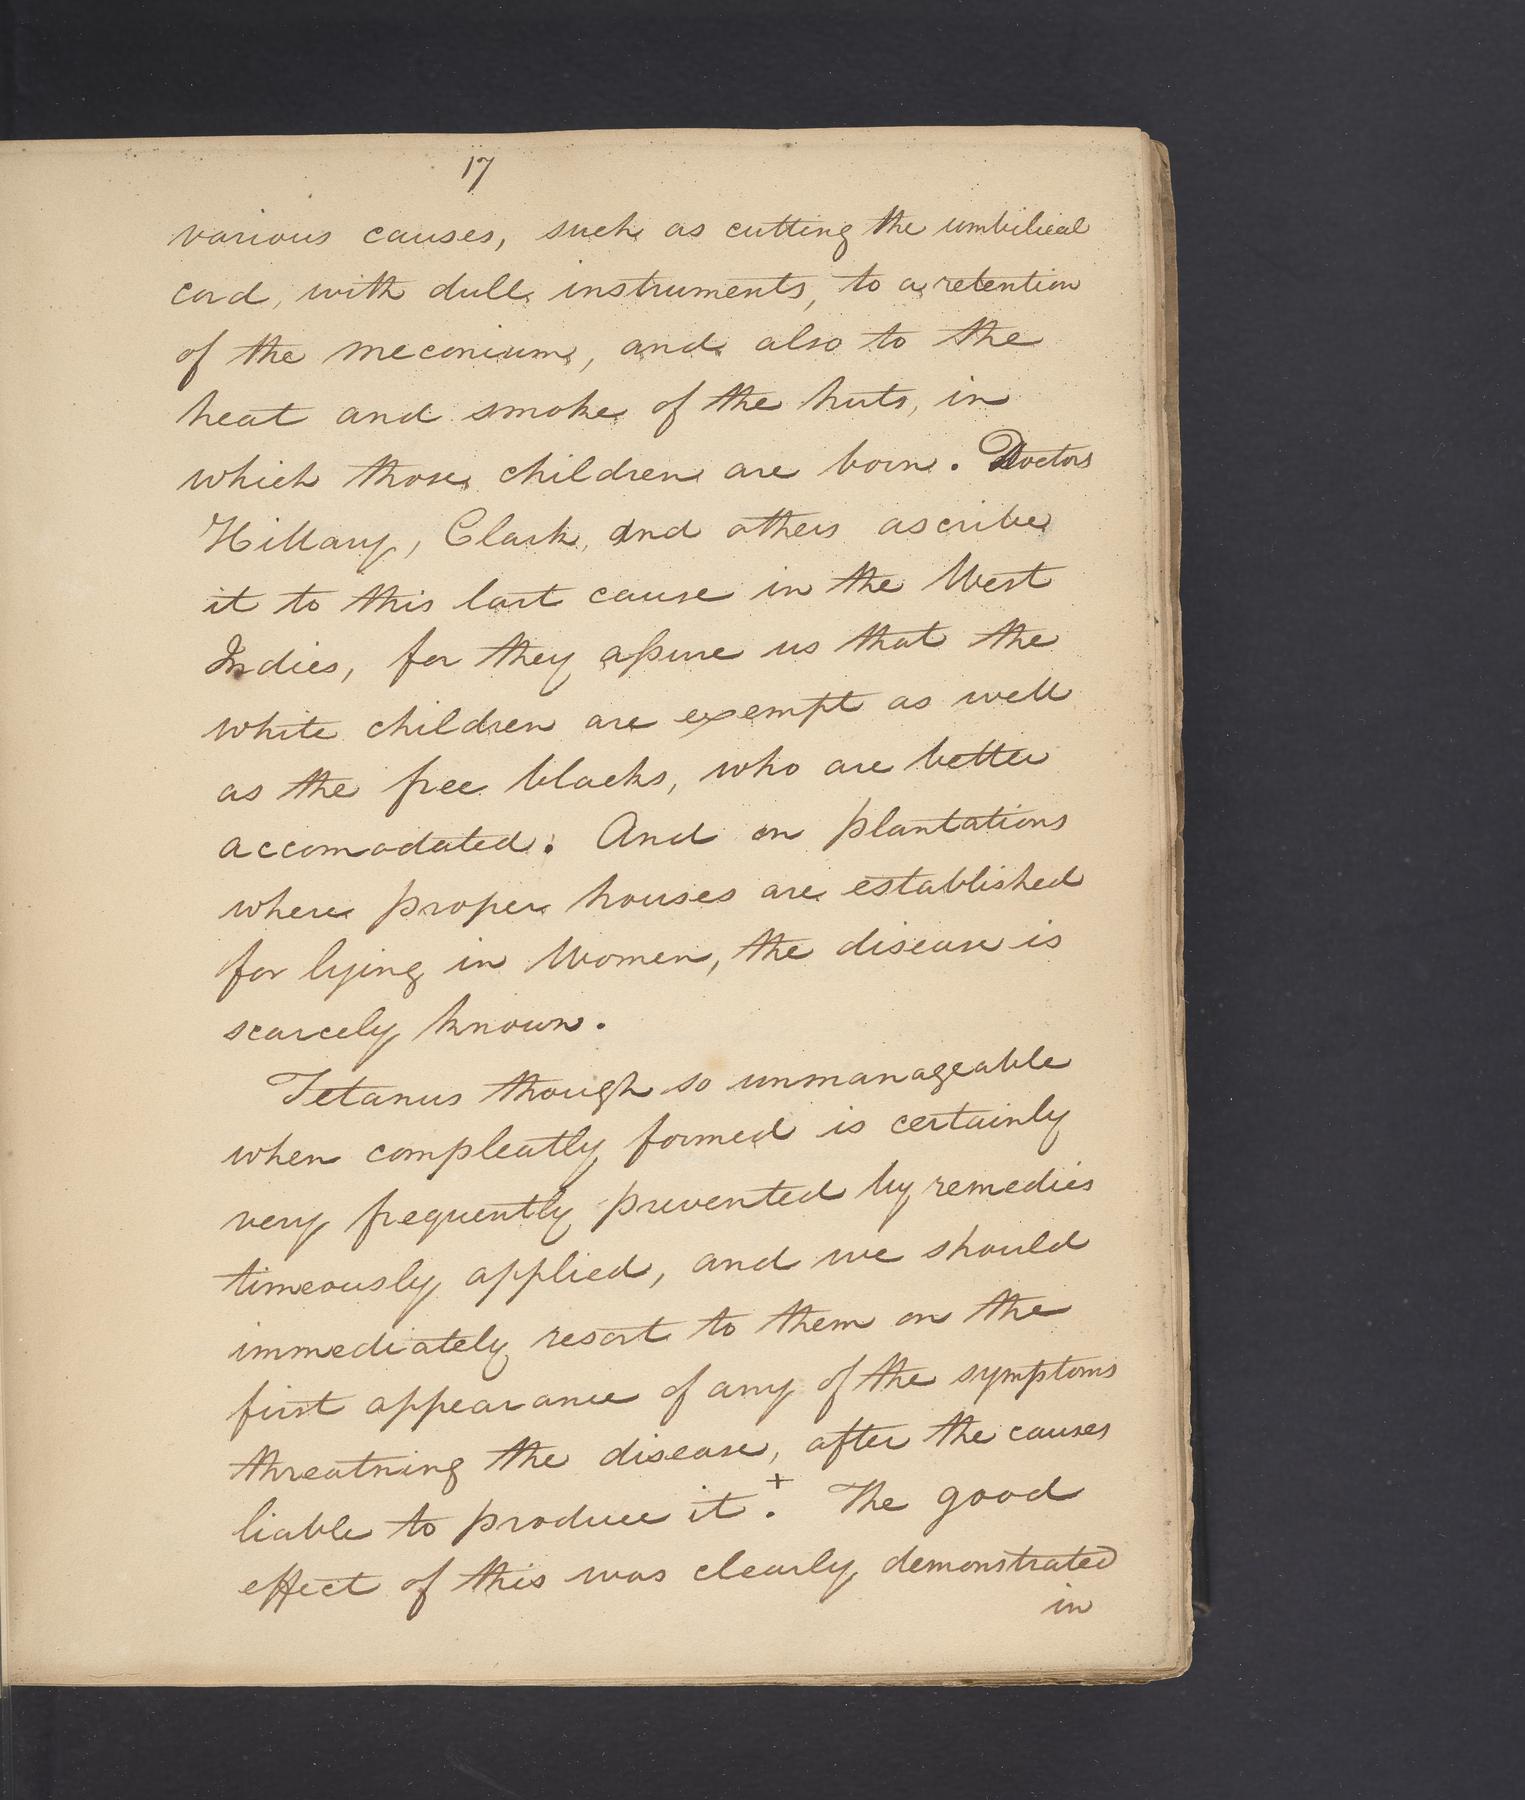 17
various causes, such as cutting the umbilical
cord, with dull instruments, to a retention
of the meconium, and also to the
heat and smoke of the huts, in
which those children are born. Doctors
Hillary, Clark, and others ascribe
it to this last cause in the West
Indies, for they aſsure us that the
white children are exempt as well
as the free blacks, who are better
accomodated. And on plantations
where proper houses are established
for lying in Women, the disease is
scarcely known.
Tetanus though so unmanageable
when compleatly formed is certainly
very frequently prevented by remedies
timeously applied, and we should
immediately resort to them on the
first appearance of any of the symptoms
threatning the disease, after the causes
liable to produce it.+ The good
effect of this was clearly demonstrated
in